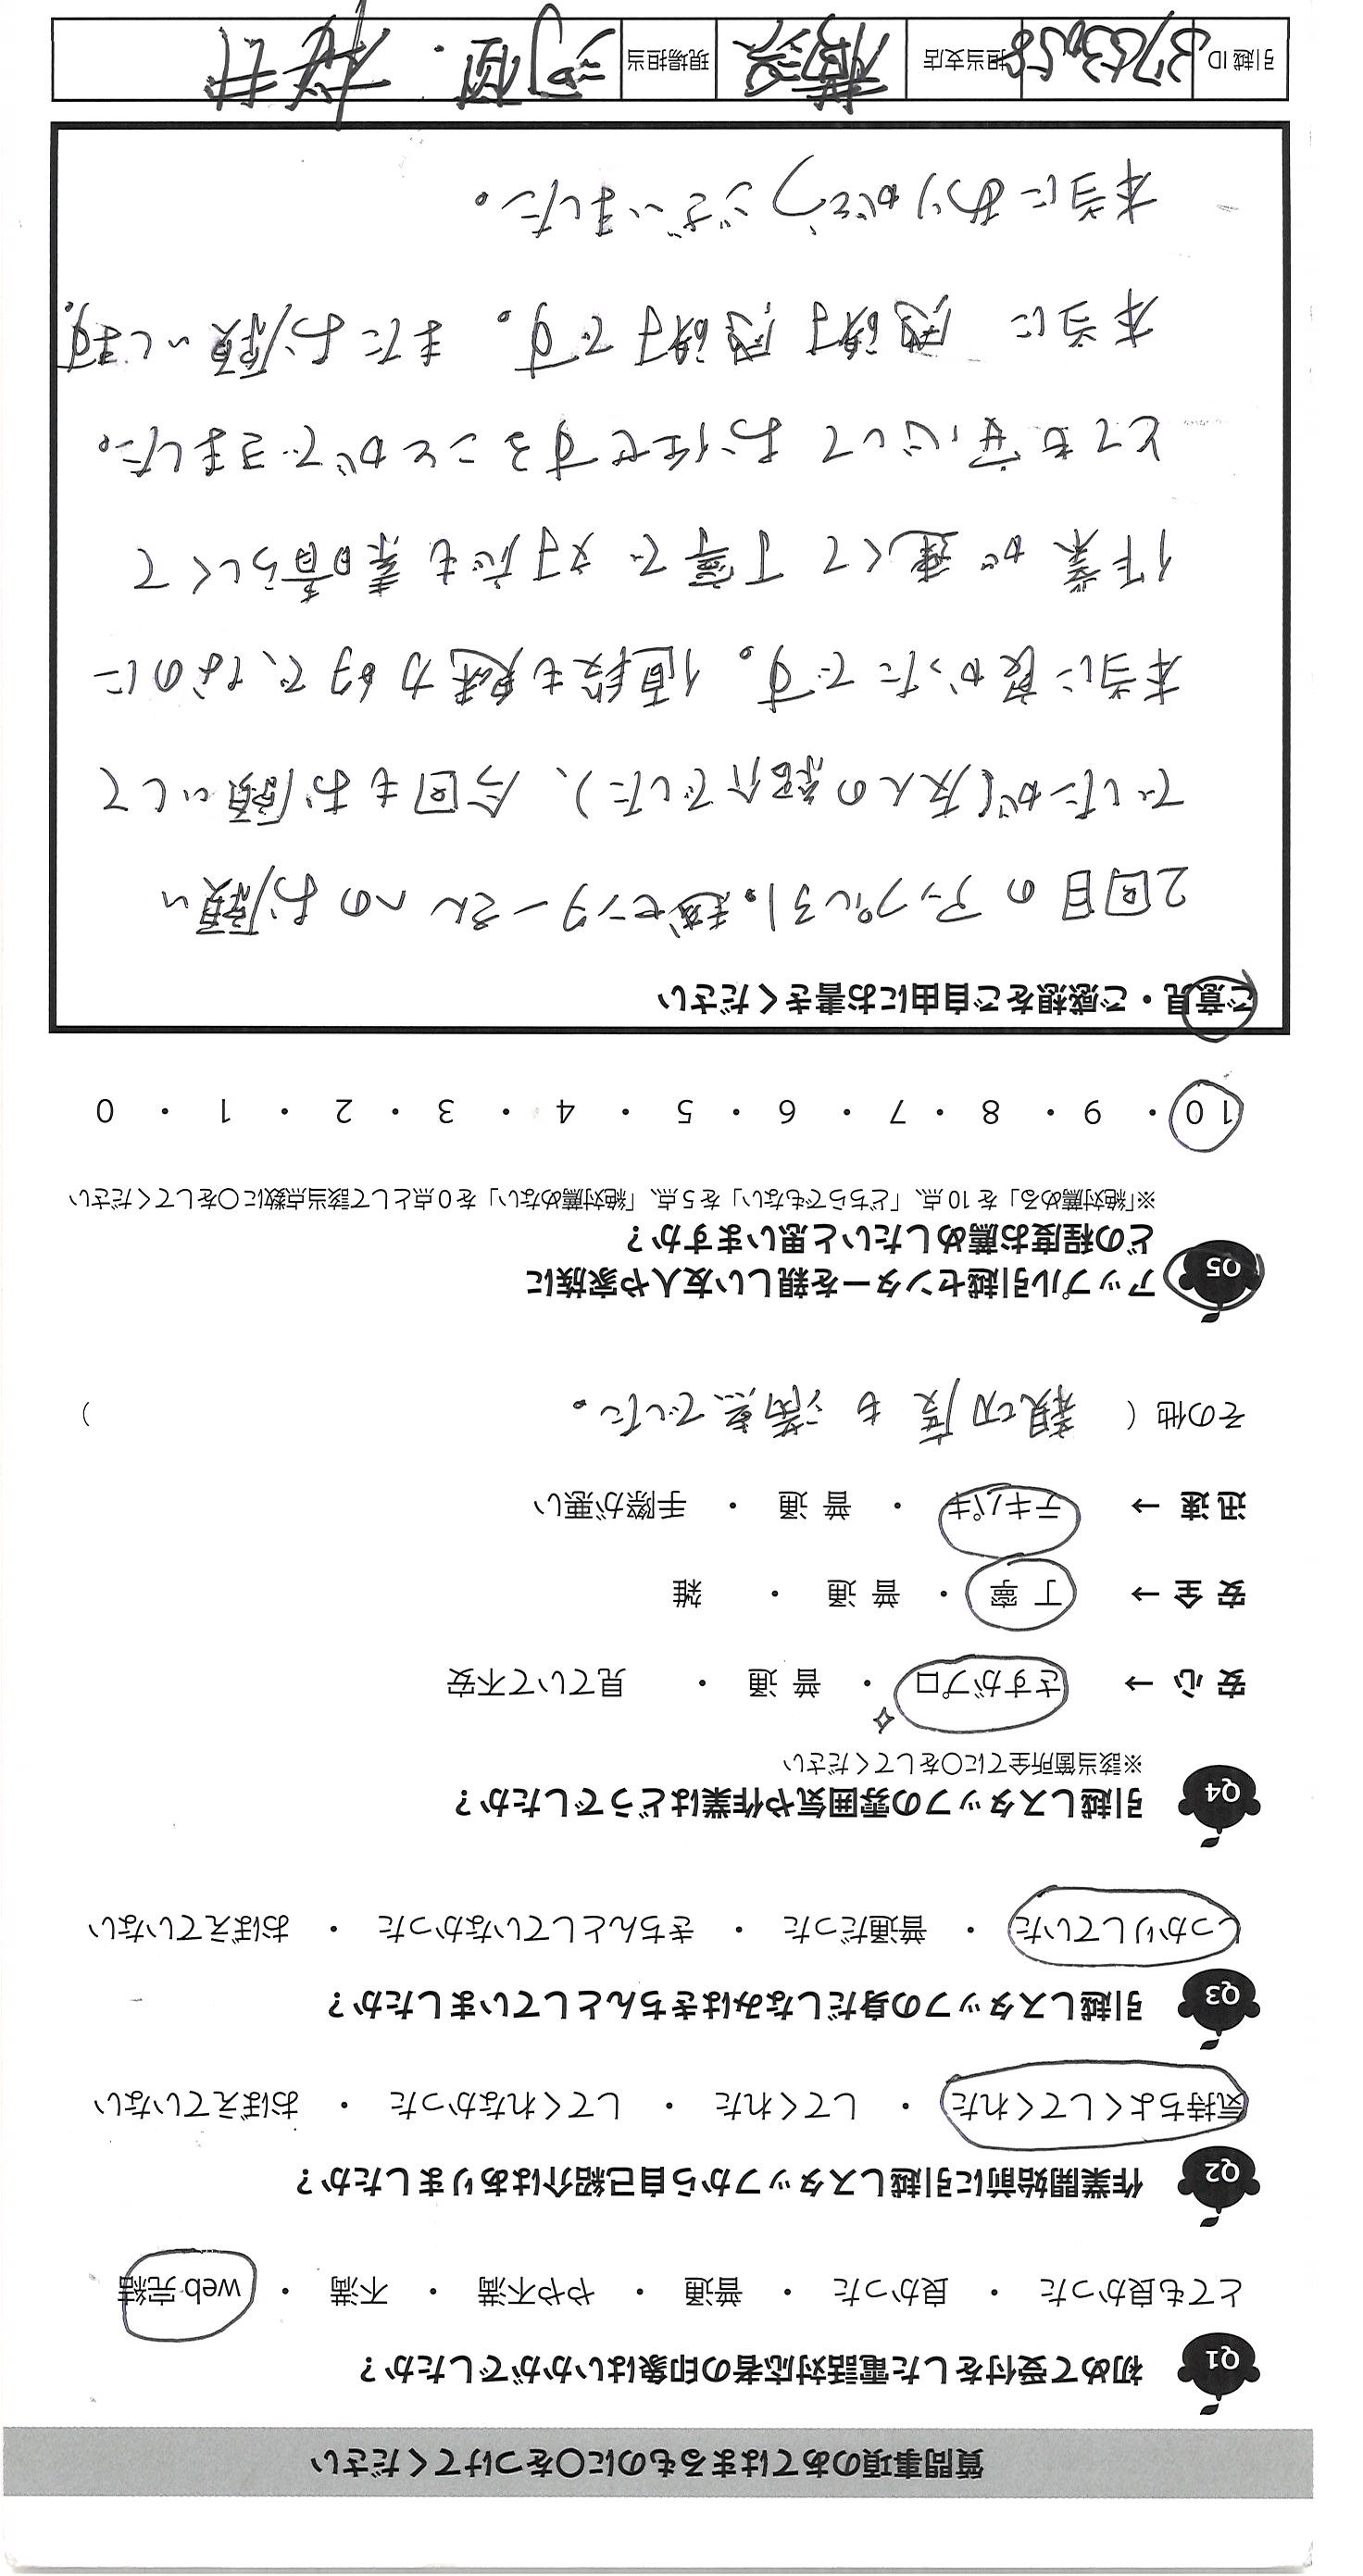 質問事項のあてはまるものに○をつけてください
Q1 初めて受付をした電話対応者の印象はいかがでしたか？
とても良かった ・ 良かった ・ 普通 ・ やや不満 ・ 不満 ・ web完結
Q2 作業開始前に引越しスタッフから自己紹介はありましたか？
気持ちよくしてくれた ・ してくれた ・ してくれなかった ・ おぼえていない
Q3 引越しスタッフの身だしなみはきちんとしていましたか？
しっかりしていた ・ 普通だった ・ きちんとしていなかった ・ おぼえていない
Q4 引越しスタッフの雰囲気や作業はどうでしたか？
※該当箇所全てに○をしてください
安心 → さすがプロ ・ 普通 ・ 見ていて不安
安全 → 丁寧 ・ 普通 ・ 雑
迅速 → テキパキ ・ 普通 ・ 手際が悪い
その他（ 親切度も満点でした。 ）
Q5 アップル引越センターを親しい友人や家族に
どの程度お薦めしたいと思いますか？
※「絶対薦める」を10点、「どちらでもない」を5点、「絶対薦めない」を0点として該当点数に○をしてください
10 ・ 9 ・ 8 ・ 7 ・ 6 ・ 5 ・ 4 ・ 3 ・ 2 ・ 1 ・ 0
ご意見・ご感想をご自由にお書きください
2回目のアップル引越センターさんへのお願い
でしたが(友人の紹介でした)、今回もお願いして
本当に良かったです。値段も魅力的で、なのに
作業が速くて丁寧で対応も素晴らしくて
とても安心してお任せすることができました。
本当に感謝感謝です。またお願いします。
本当にありがとうございました。
引越ID 3763058 担当支店 横浜 現場担当 桜井